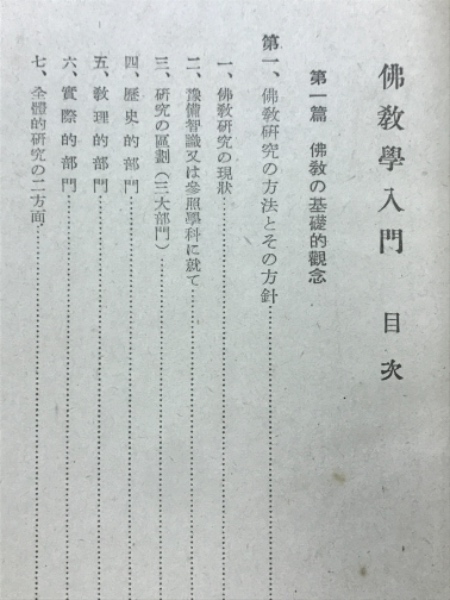 佛敎學入門 目次
第一篇 佛敎の基礎的觀念
第一、佛敎硏究の方法とその方針
一、佛敎硏究の現狀
二、豫備智識又は參照學科に就て
三、硏究の區劃(三大部門)
四、歷史的部門
五、敎理的部門
六、實際的部門
七、全體的硏究の二方面